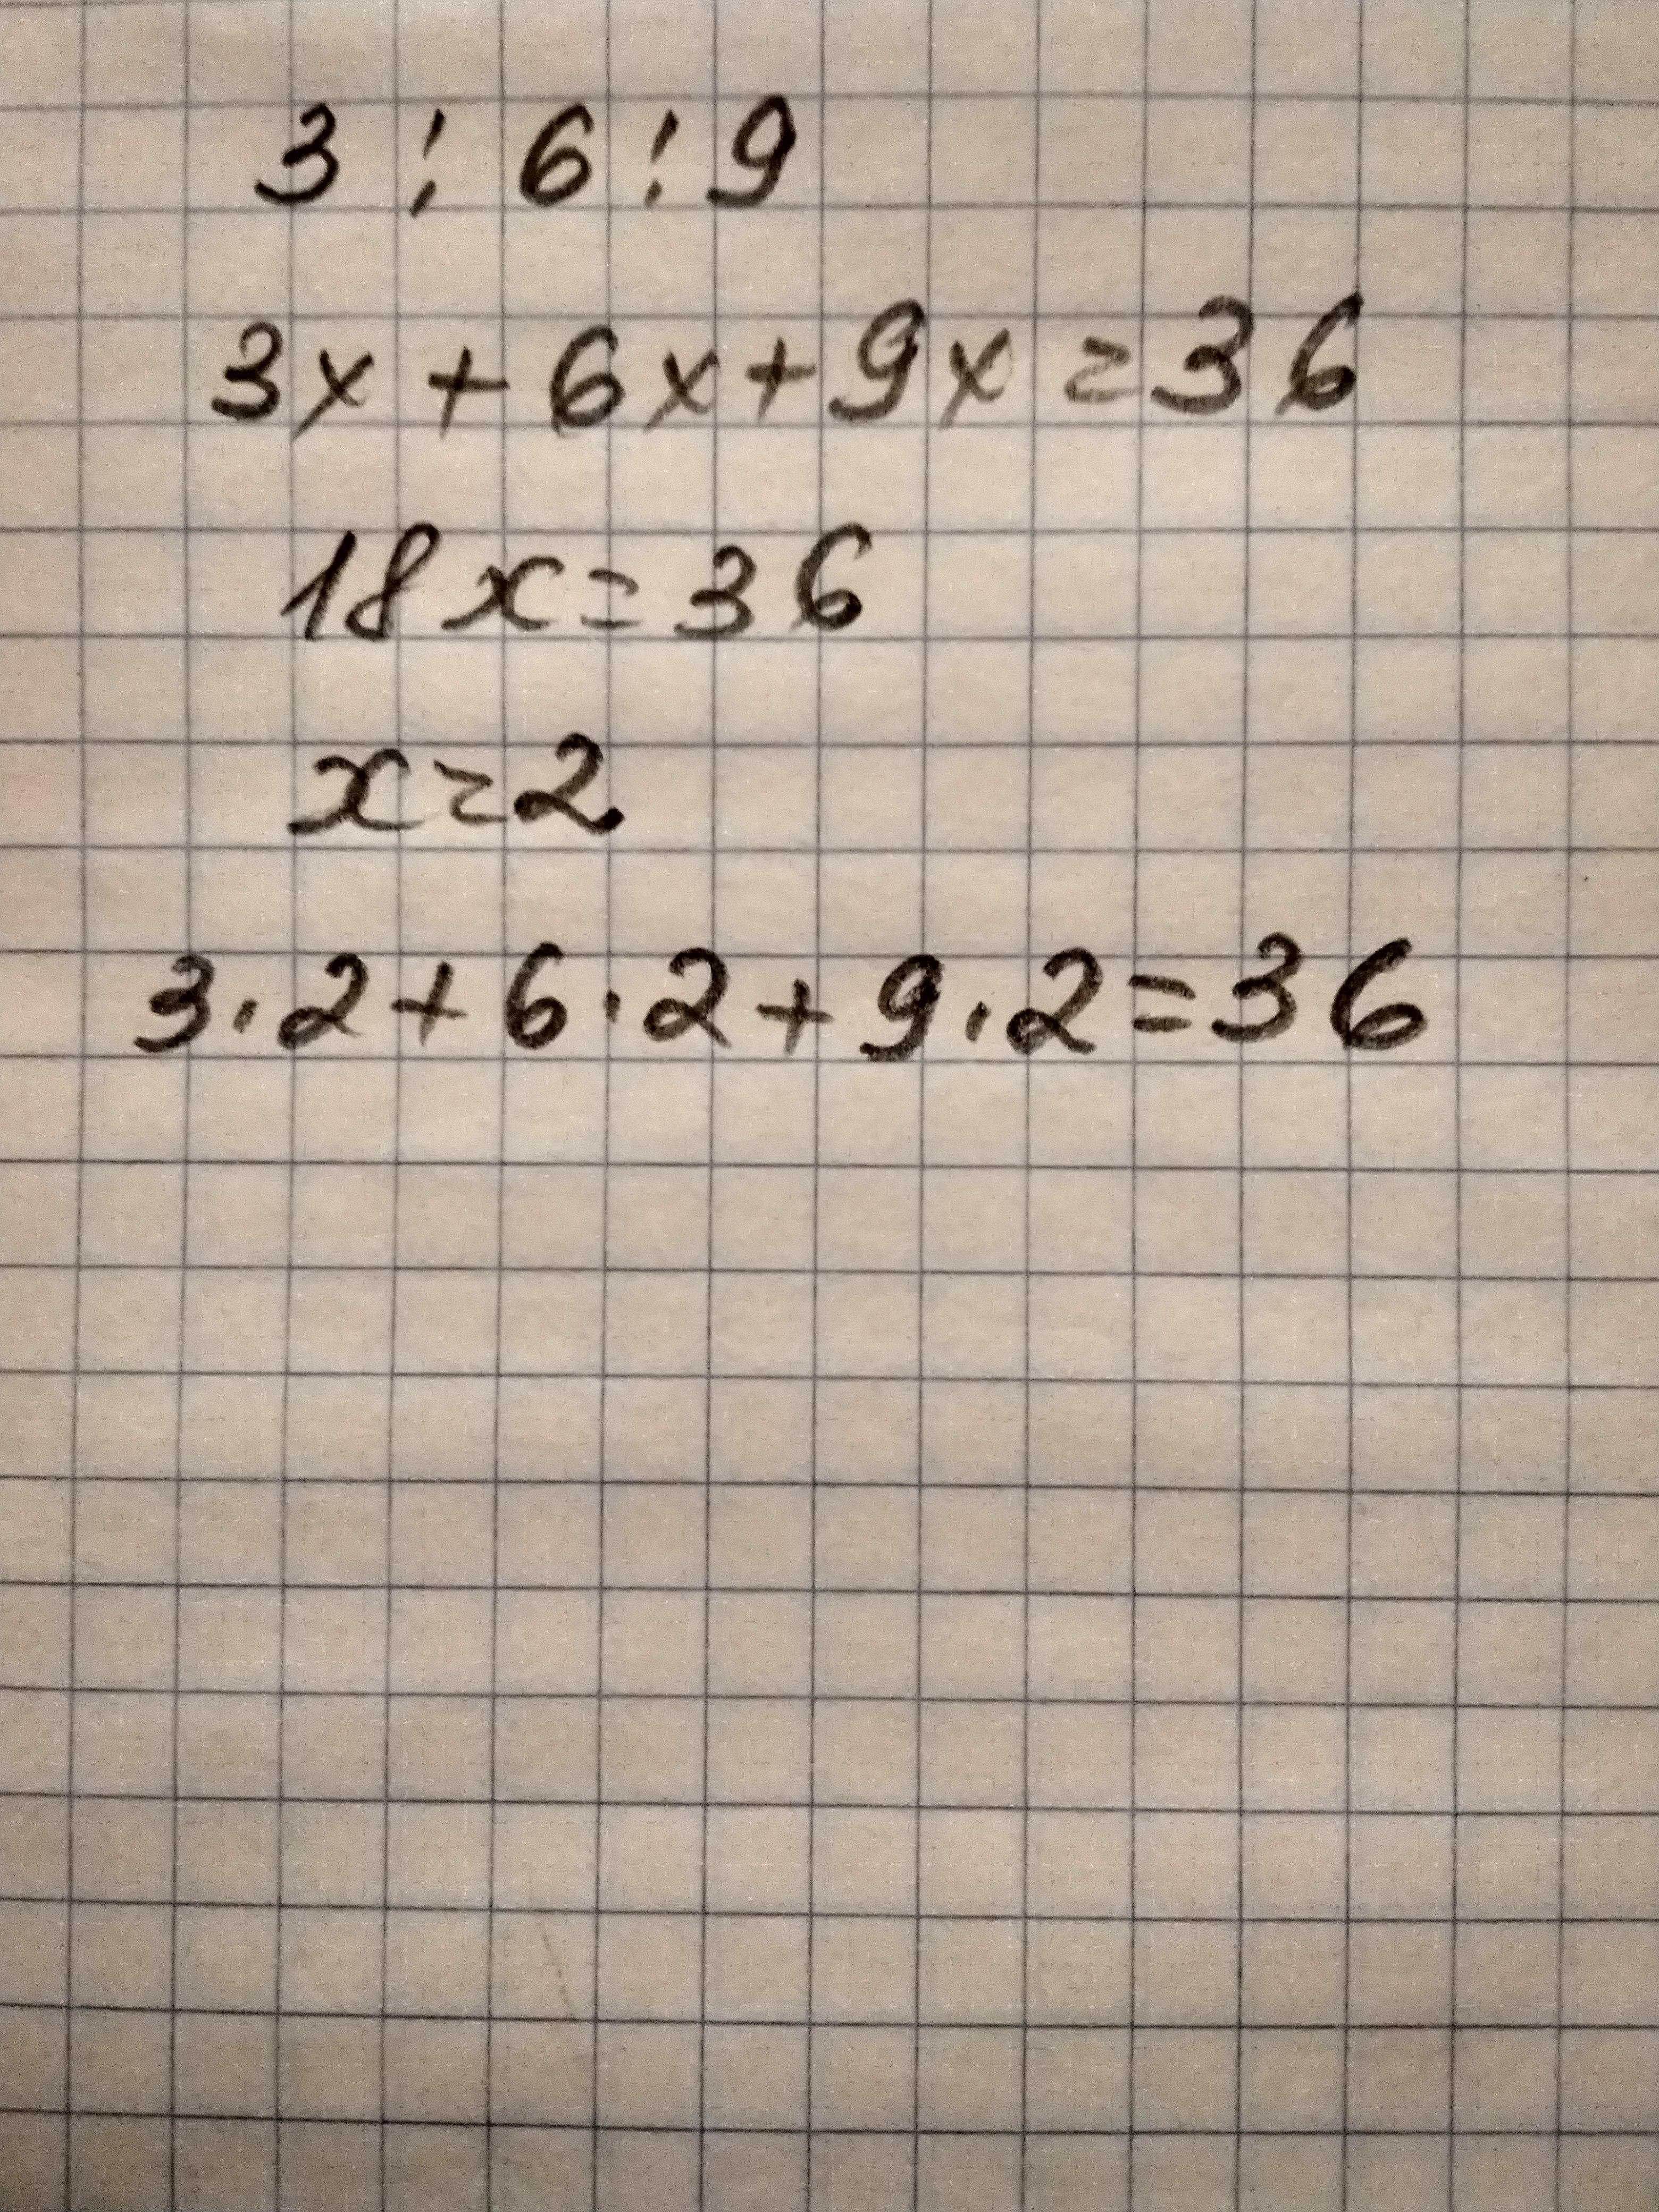 3 : 6 : 9
3x + 6x + 9x = 36
18x = 36
x = 2
3 · 2 + 6 · 2 + 9 · 2 = 36